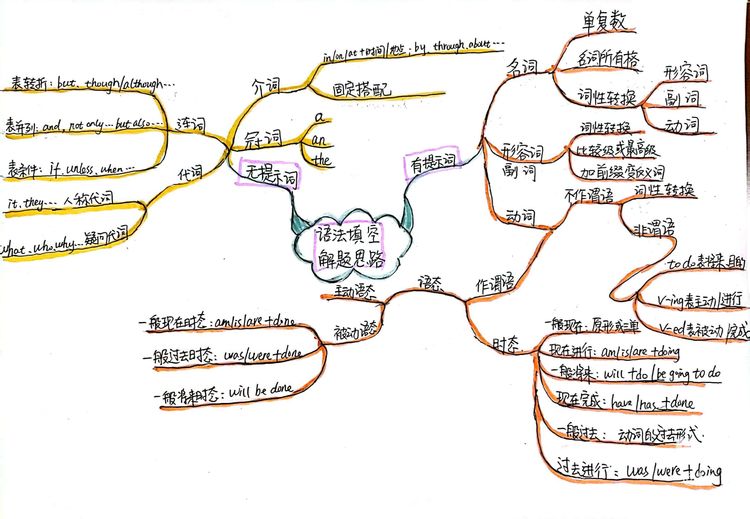 语法填空
解题思路
无提示词
介词
in/on/at+时间/地点; by, through, about…
固定搭配
冠词
a
an
the
连词
表转折: but, though/although…
表并列: and, not only… but also…
表条件: if, unless, when…
代词
it, they… 人称代词
what, who, why… 疑问代词
有提示词
名词
单复数
名词所有格
词性转换
形容词
副词
动词
形容词
副词
词性转换
比较级或最高级
加前缀变反义词
动词
不作谓语
词性转换
非谓语
to do 表将来目的
v-ing表主动/进行
v-ed表被动/完成
作谓语
语态
主动语态
被动语态
一般现在时态: am/is/are+done
一般过去时态: was/were+done
一般将来时态: will be done
时态
一般现在: 原形或三单
现在进行: am/is/are+doing
一般将来: will+do/be going to do
现在完成: have/has+done
一般过去: 动词的过去形式
过去进行: was/were+doing